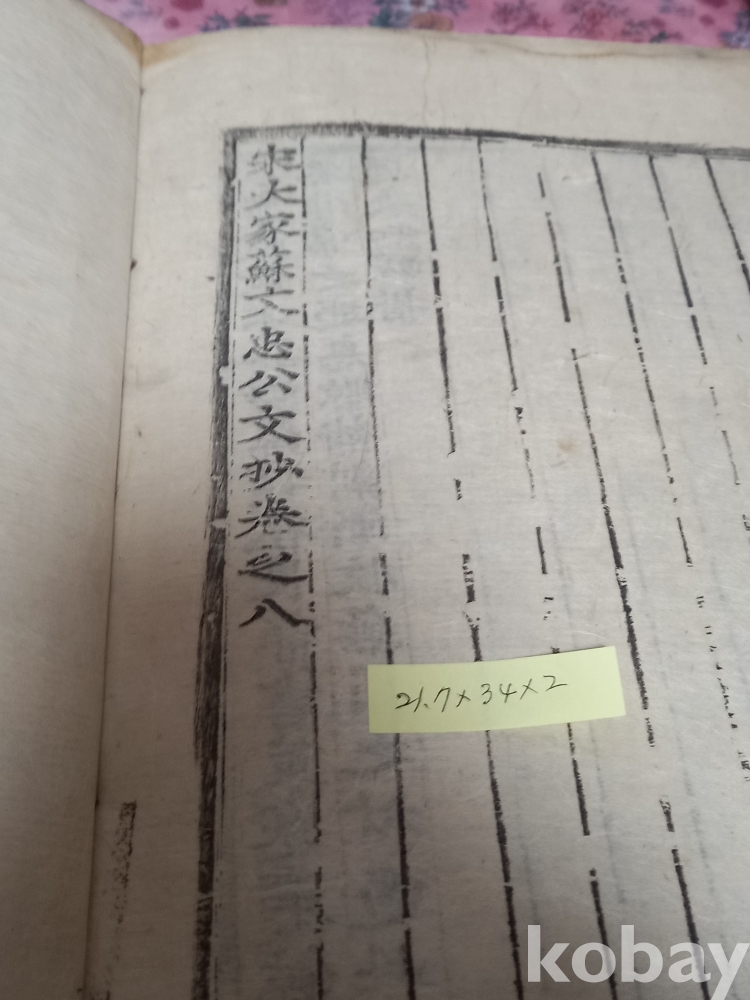 宋大家蘇文忠公文抄卷之八
21.7×34×2
kobay